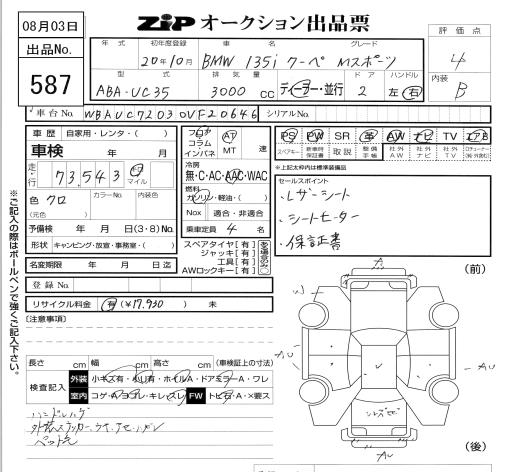 08月03日
ZiP オークション出品票
評価点
4
内装
B
出品No.
587
年式 初年度登録 車名 グレード
20年10月 BMW 135i クーペ Mスポーツ
型式 排気量 ドア ハンドル
ABA-UC35 3000 cc ディーラー・並行 2 左・右
車台No. WBAUC72030VF20646 シリアルNo.
車歴 自家用・レンタ・( )
車検 年 月
走行 73,543 キロ マイル
色 クロ カラーNo. 内装色
(元色)
予備検 年 月 日(3・8)No.
形状 キャンピング・放送・事務室・( )
名変期限 年 月 日迄
登録No.
リサイクル料金 有(¥17,930) 未
フロア コラム インパネ
AT MT 速
冷房
無・C・AC・AAC・WAC
燃料
ガソリン・軽油・( )
Nox 適合・非適合
乗車定員 4 名
スペアタイヤ[有]
ジャッキ[有]
工具[有]
AWロックキー[有]
ある場合のみ〇
PS PW SR 革 AW ナビ TV エアB
スペアキー 新車時保証書 取説 整備手帳 社外AW 社外ナビ 社外TV
*上記太枠内は標準装備品
セールスポイント
・レザーシート
・シートヒーター
・保証書
※ご記入の際はボールペンで強くご記入下さい。
[注意事項]
長さ cm 幅 cm 高さ cm (車検証上の寸法)
検査記入 外装 小キズ有・小凹有・ホイルA・ドアミラーA・ワレ
室内 コゲA・ヨゴレ・キレ・スレ FW トビ石・A・×要ス
ハンドルハゲ
(前)
(後)